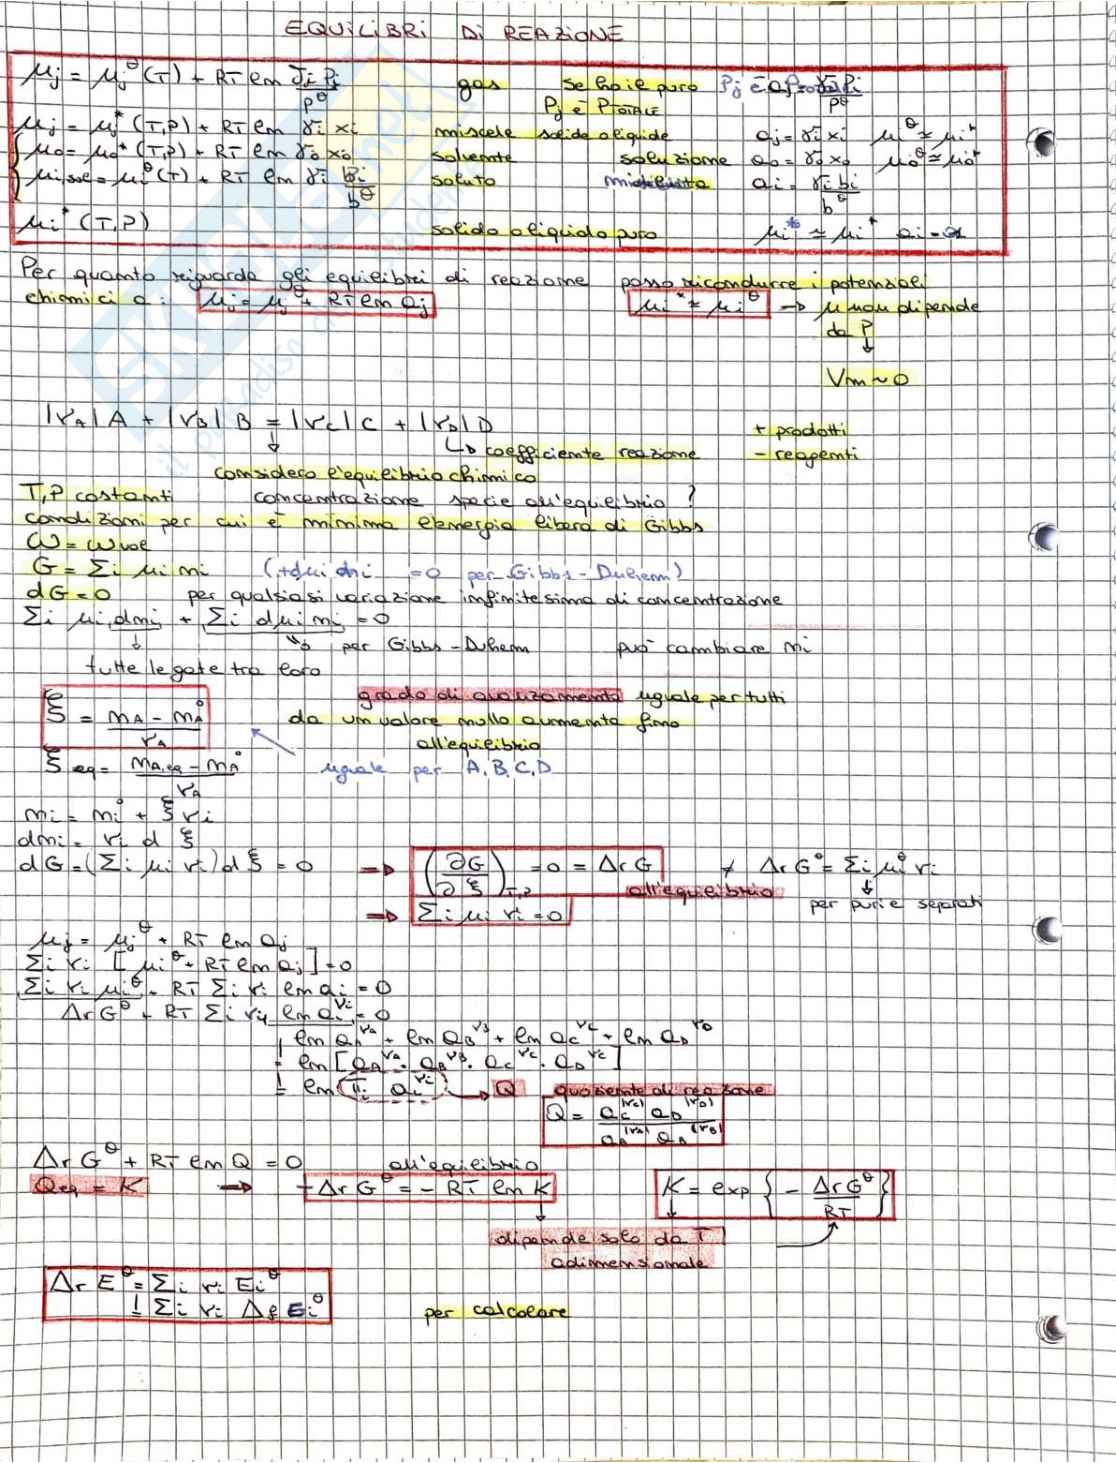 EQUILIBRI DI REAZIONE
μj = μj^θ (T) + RT ln γi Pi / P^θ gas se ho i puro Pj è
Pj è PTOTALE
μj = μj* (T,P) + RT ln γi xi miscele solide o liquide aj = γi xi μi^θ ≃ μi*
μo = μo* (T,P) + RT ln γo xo solvente soluzione ao = γo xo μo^θ ≃ μo*
μi,sol = μi^θ (T) + RT ln γi bi / b^θ soluto ai = γi bi / b^θ
μi* (T,P) solido o liquido puro μi* ≃ μi*
Per quanto riguarda gli equilibri di reazione posso ricondurre i potenziali
chimici a: μj = μj^θ + RT ln aj μi* ≃ μi^θ → μ non dipende
da P
↓
Vm ~ 0
|νA| A + |νB| B = |νC| C + |νD| D + prodotti
↳ coefficiente reazione - reagenti
considero l'equilibrio chimico
T,P costanti concentrazione specie all'equilibrio ?
condizioni per cui è minima l'energia libera di Gibbs
ω = ωvol
G = Σi μi ni (+dμi dni = 0 per Gibbs-Duhem)
dG = 0 per qualsiasi variazione infinitesima di concentrazione
Σi μi dni + Σi dμi ni = 0
↓ ↳ per Gibbs-Duhem può cambiare ni
tutte legate tra loro
ξ = nA - nA° / νA grado di avanzamento uguale per tutti
da un valore nullo aumenta fino
all'equilibrio
ξeq = nA,eq - nA° / νA uguale per A, B, C, D
ni = ni° + ξ νi
dni = νi d ξ
dG = (Σi μi νi) d ξ = 0 → (∂G / ∂ξ)T,P = 0 = ΔrG ≠ ΔrG° = Σi μi° νi
all'equilibrio ↓
per puri e separati
→ Σi μi νi = 0
μj = μj^θ + RT ln aj
Σi νi [μi^θ + RT ln ai] = 0
Σi νi μi^θ + RT Σi νi ln ai = 0
ΔrG^θ + RT Σi ln ai^νi = 0
ln aA^νA + ln aB^νB + ln aC^νC + ln aD^νD
= ln [aA^νA · aB^νB · aC^νC · aD^νC]
= ln (πi ai^νi) → Q quoziente di reazione
Q = aC^|νC| aD^|νD| / aA^|νA| aB^|νB|
ΔrG^θ + RT ln Q = 0 all'equilibrio
Qeq = K → ΔrG^θ = - RT ln K K = exp { - ΔrG^θ / RT }
↓
dipende solo da T
adimensionale
ΔrE^θ = Σi νi Ei^θ
= Σi νi Δf Ei^θ per calcolare